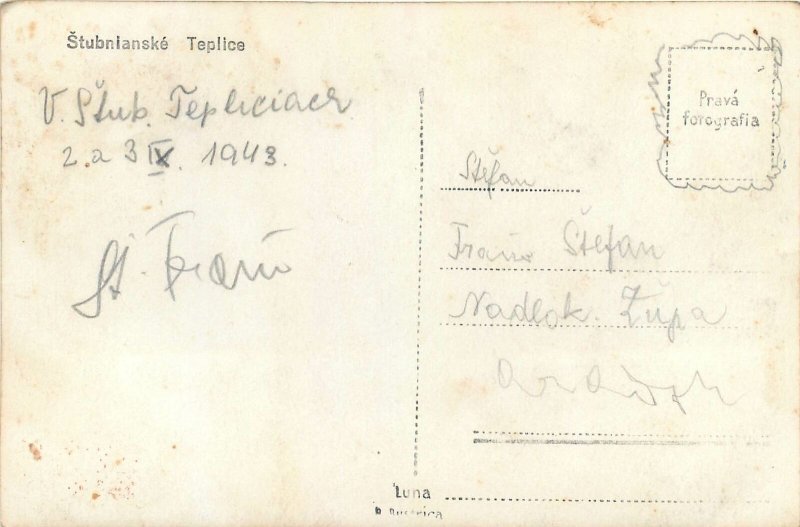 Štubnianské Teplice
V. Štub. Tepliciach
2. a 3 IX. 1943.
St. Fraňo
Pravá
fotografia
Štefan
Fraňo Štefan
Nadlok. Župa
Luna